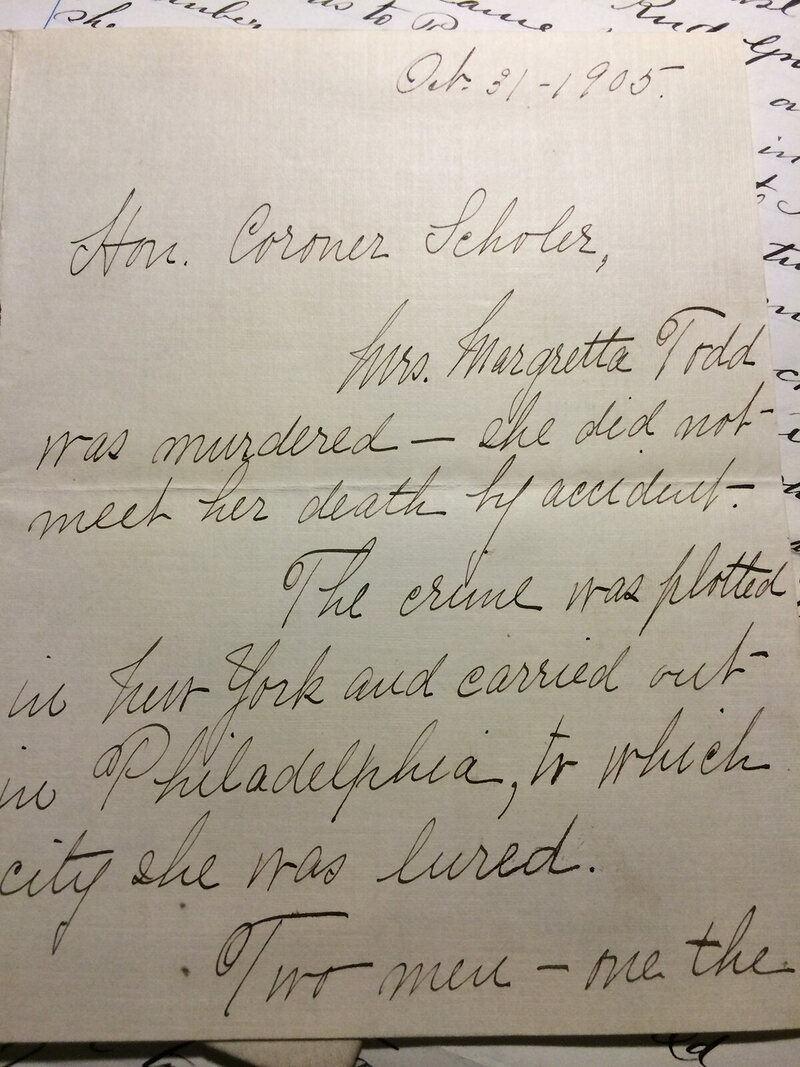 Oct. 31-1905.
Hon. Coroner Scholer,
Mrs. Margretta Todd
was murdered — she did not
meet her death by accident.
The crime was plotted
in New York and carried out
in Philadelphia, to which
city she was lured.
Two men — one the
she
to
in